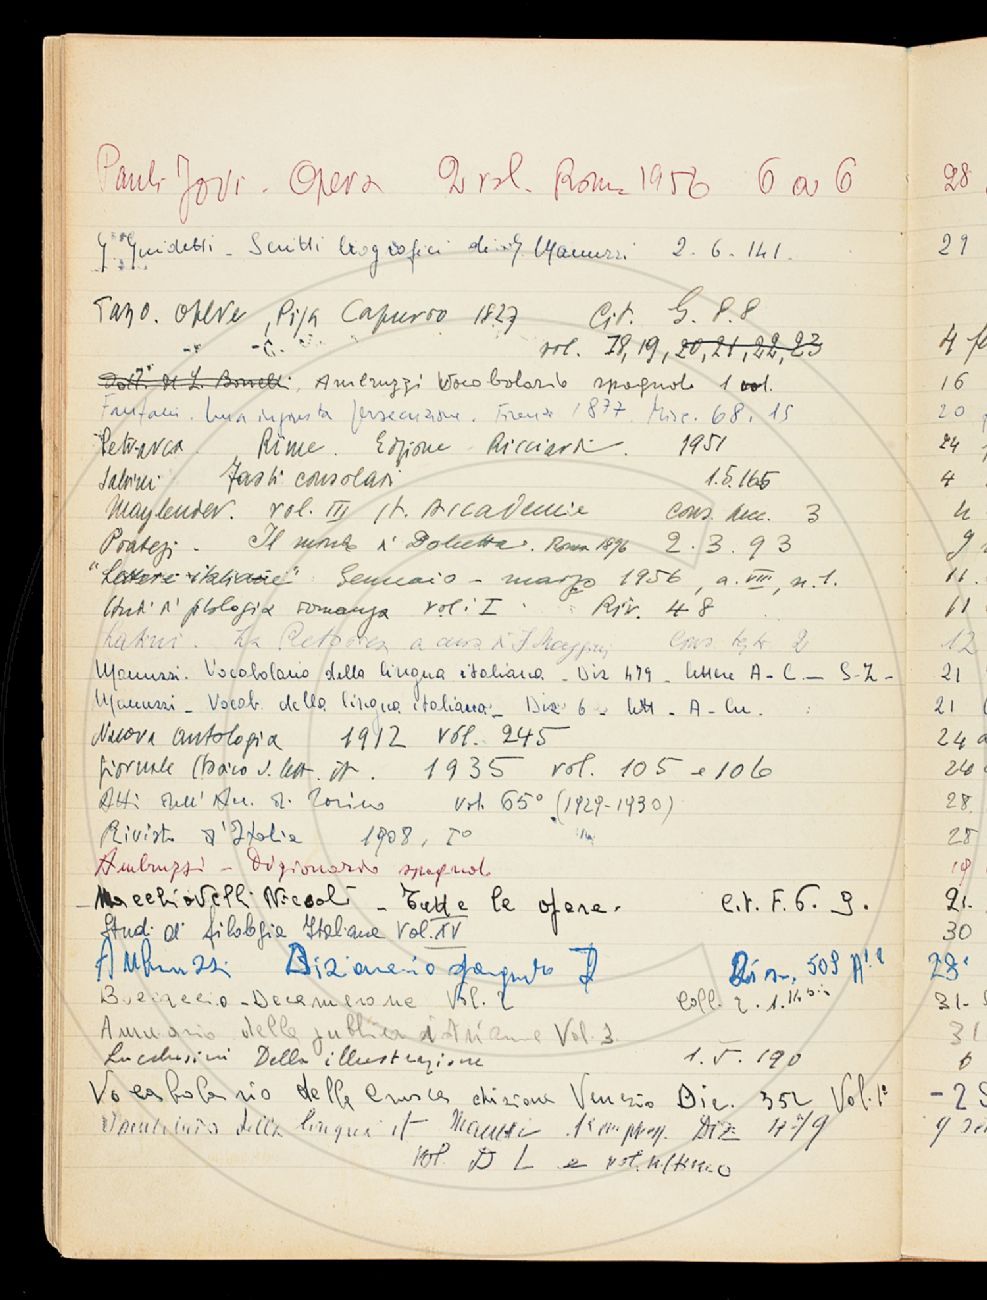 Pauli Jovi. Opera 2 vol. Roma 1956 6 a 6 28
G. Guidetti - Scritti biografici di G. Manuzzi 2. 6. 141. 29
Tasso. Opere, Pisa Capurro 1827 Cit. G. 8.8
" " vol. 18, 19, 20, 21, 22, 23 4
Ambruzzi Vocabolario spagnolo 1 vol. 16
Fanfani. Una ingiusta persecuzione. Firenze 1877. Misc. 68. 15 20
Petrarca Rime. Edizione Ricciardi. 1951 24
Salvini Fasti consolari 1.5.165 4
Maylender. vol. III St. Accademie Cons. Acc. 3 4
Il mondo di Dolcetta. Roma 1896 2. 3. 93 9
"Lettere italiane" Gennaio - marzo 1956, a. VIII, n. 1. 11.
Studi di filologia romanza vol. I Riv. 48 11
Latini. La Rettorica a cura di F. Maggini Cons. 2 12
Manuzzi. Vocabolario della lingua italiana - Diz 479 - lettere A - C. - S-Z - 21
Manuzzi - Vocab. della lingua italiana - Diz 6 - lett. A - Cu. 21
Nuova antologia 1912 vol. 245 24
Giornale storico d. lett. it. 1935 vol. 105 e 106 24
Atti dell'Acc. di Torino vol. 65° (1929-1930) 28
Rivista d'Italia 1908, I° 28
Ambruzzi - Dizionario spagnolo 19
- Macchiavelli Nicolò - Tutte le opere. Cit. F. 6. 9. 21.
Studi di filologia Italiana Vol. XV 30
Ambruzzi Dizionario spagnolo I Diz. 509 A.1 23
Boccaccio - Decamerone Vol. 2 Coll. 2. 1. 14 bis 31
Annuario della pubblica istruzione Vol. 3. 31
Lucchesini Della illustrazione 1. V. 190 6
Vocabolario della Crusca edizione Venezia Diz. 352 Vol. 1° - 2
Vocabolario della lingua it Manuzzi Diz 479 9
vol. D L e vol. ultimo